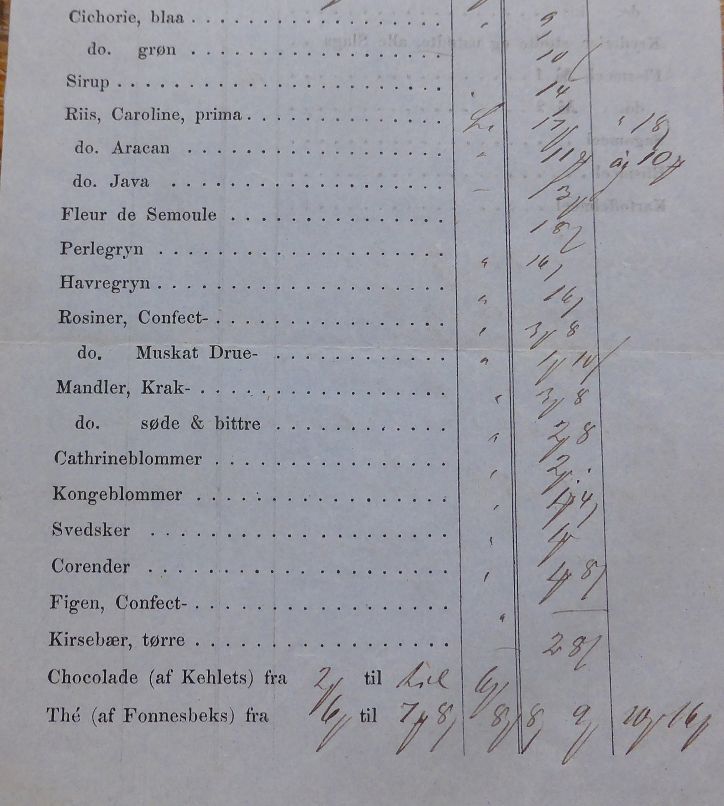 Cichorie, blaa . . . . . . . . . . . . . . . . . . . . " 9
do. grøn . . . . . . . . . . . . . . . . . . . 10
Sirup . . . . . . . . . . . . . . . . . . . . . . . . . 14
Riis, Caroline, prima . . . . . . . . . . . . . . . 18
do. Aracan . . . . . . . . . . . . . . . . . . . " 11 10
do. Java . . . . . . . . . . . . . . . . . . . . .
Fleur de Semoule . . . . . . . . . . . . . . . . 18
Perlegryn . . . . . . . . . . . . . . . . . . . . . " 16
Havregryn . . . . . . . . . . . . . . . . . . . . . " 16
Rosiner, Confect- . . . . . . . . . . . . . . . . . " 3 8
do. Muskat Drue- . . . . . . . . . . . . . "
Mandler, Krak- . . . . . . . . . . . . . . . . . . " 3 8
do. søde & bittre . . . . . . . . . . . . . " 2 8
Cathrineblommer . . . . . . . . . . . . . . . . . " 2
Kongeblommer . . . . . . . . . . . . . . . . . . "
Svedsker . . . . . . . . . . . . . . . . . . . . . "
Corender . . . . . . . . . . . . . . . . . . . . . " 8
Figen, Confect- . . . . . . . . . . . . . . . . . . "
Kirsebær, tørre . . . . . . . . . . . . . . . . . . 2 8
Chocolade (af Kehlets) fra 2 til til 6
Thé (af Fonnesbeks) fra 6 til 7 8 8 8 9 10 16